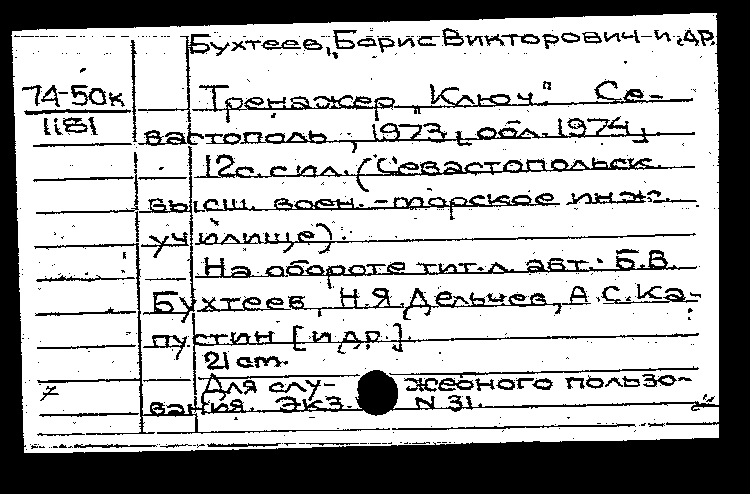 Бухтеев, Борис Викторович и др.
74-50к
1181
Тренажер "Ключ". Се-
вастополь, 1973, [обл. 1974].
12с. с ил. (Севастопольск.
высш. воен.-морское инж.
училище).
На обороте тит. л. авт.: Б.В.
Бухтеев, Н.Я. Дельчев, А.С. Ка-
пустин [и др.].
21 см.
Для слу- жебного пользо-
вания. Экз. N 31.